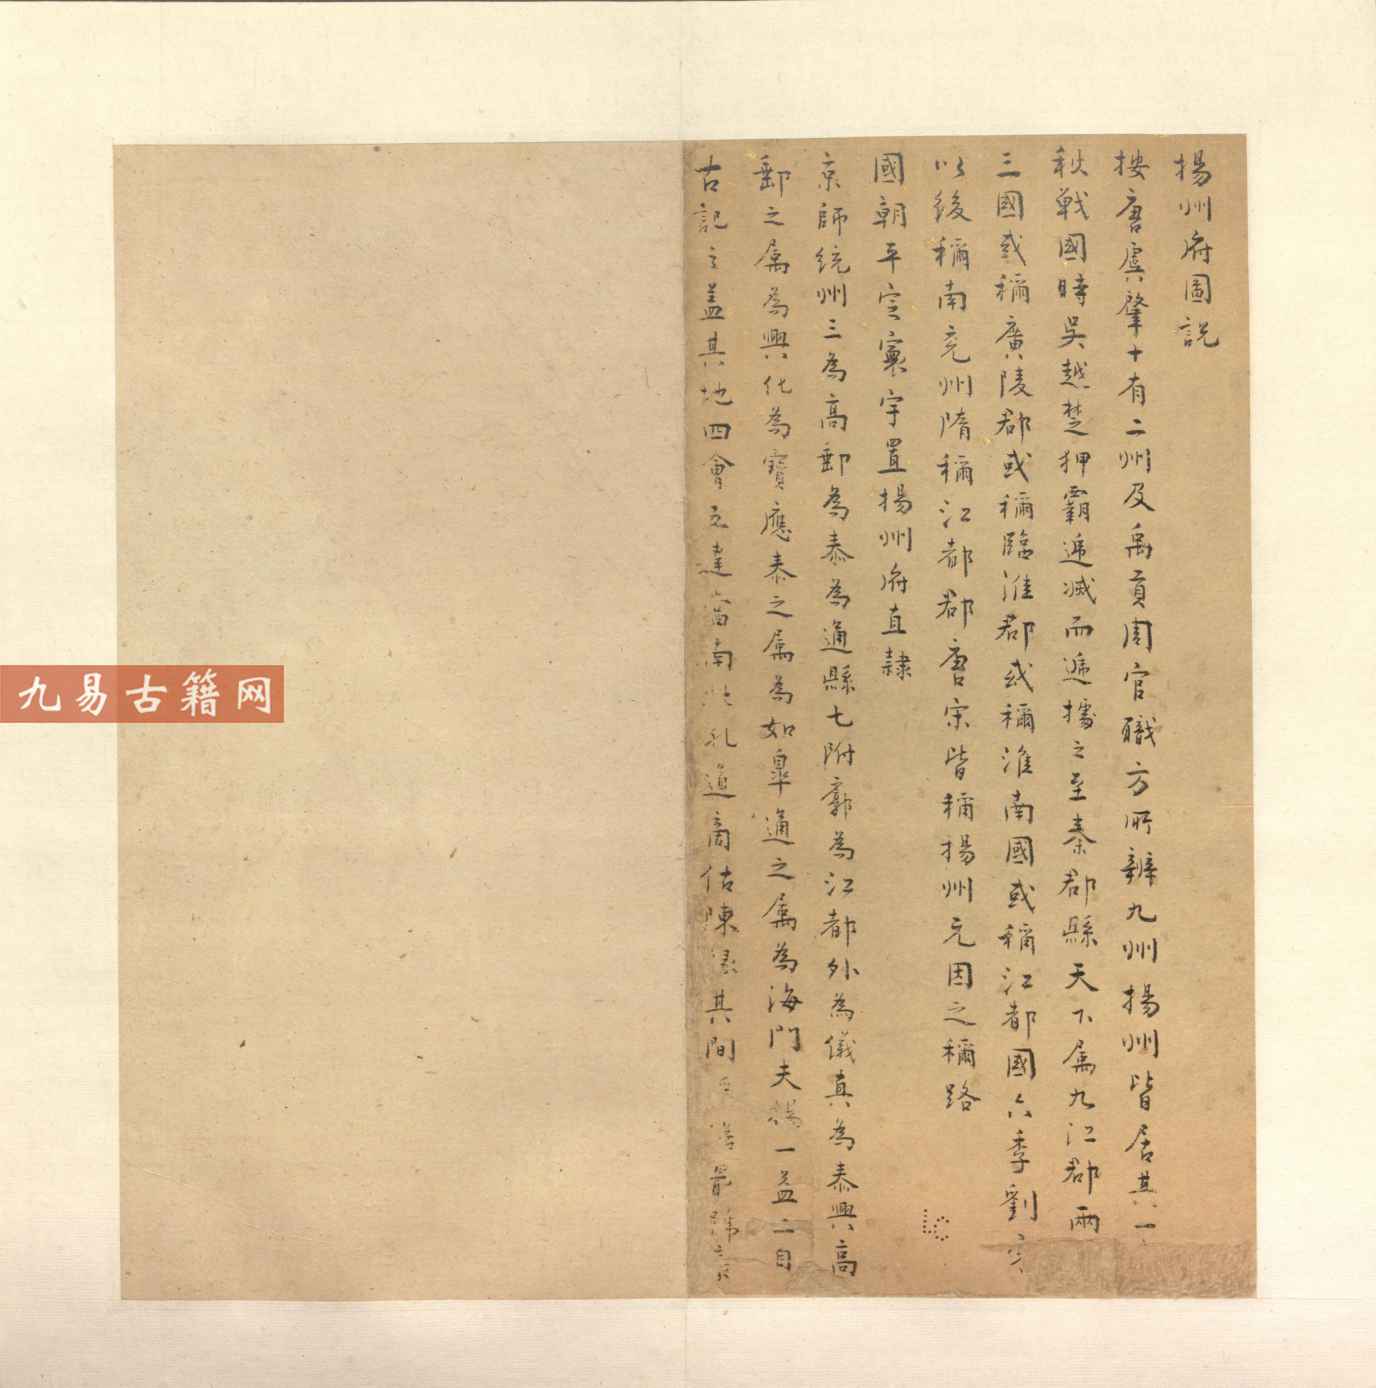 揚州府圖說
按唐虞肇十有二州及禹貢周官職方所辨九州揚州皆居其一
秋戰國時吳越楚押霸遞滅而遞據之至秦郡縣天下屬九江郡兩
三國或稱廣陵郡或稱臨淮郡或稱淮南國或稱江都國六季劉宋
以後稱南兗州隋稱江都郡唐宋皆稱揚州元因之稱路
國朝平定寰宇置揚州府直隸
京師統州三為高郵為泰為通縣七附郭為江都外為儀真為泰興高
郵之屬為興化為寶應泰之屬為如皋通之屬為海門夫揚一益二自
古記之蓋其地四會五達當南北孔道商估陳椽其間
九易古籍网